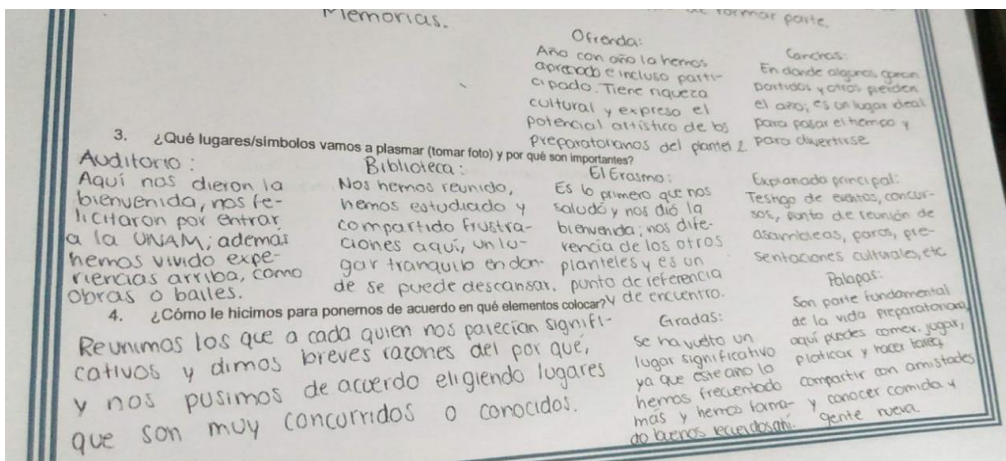 Memorias.
formar parte.
Ofrenda:
Año con año la hemos
apreciado e incluso parti-
cipado. Tiene riqueza
cultural y expresa el
potencial artístico de los
preparatorianos del plantel 2
Canchas:
En donde algunos ganan
partidos y otros pierden
el año; es un lugar ideal
para pasar el tiempo y
para divertirse
3. ¿Qué lugares/símbolos vamos a plasmar (tomar foto) y por qué son importantes?
Auditorio:
Aquí nos dieron la
bienvenida, nos fe-
licitaron por entrar
a la UNAM; además
hemos vivido expe-
riencias arriba, como
obras o bailes.
Biblioteca:
Nos hemos reunido,
hemos estudiado y
compartido frustra-
ciones aquí, un lu-
gar tranquilo en don-
de se puede descansar.
El Erasmo:
Es lo primero que nos
saludó y nos dió la
bienvenida; nos dife-
rencia de los otros
planteles y es un
punto de referencia
y de encuentro.
Explanada principal:
Testigo de eventos, concur-
sos, punto de reunión de
asambleas, paros, pre-
sentaciones culturales, etc
4. ¿Cómo le hicimos para ponernos de acuerdo en qué elementos colocar?
Reunimos los que a cada quien nos parecían signifi-
cativos y dimos breves razones del por qué,
y nos pusimos de acuerdo eligiendo lugares
que son muy concurridos o conocidos.
Gradas:
se ha vuelto un
lugar significativo
ya que este año lo
hemos frecuentado
más y hemos forma-
do buenos recuerdos ahí.
Palapas:
Son parte fundamental
de la vida preparatoriana,
aquí puedes comer, jugar,
platicar y hacer tarea,
compartir con amistades
y conocer comida y
gente nueva.